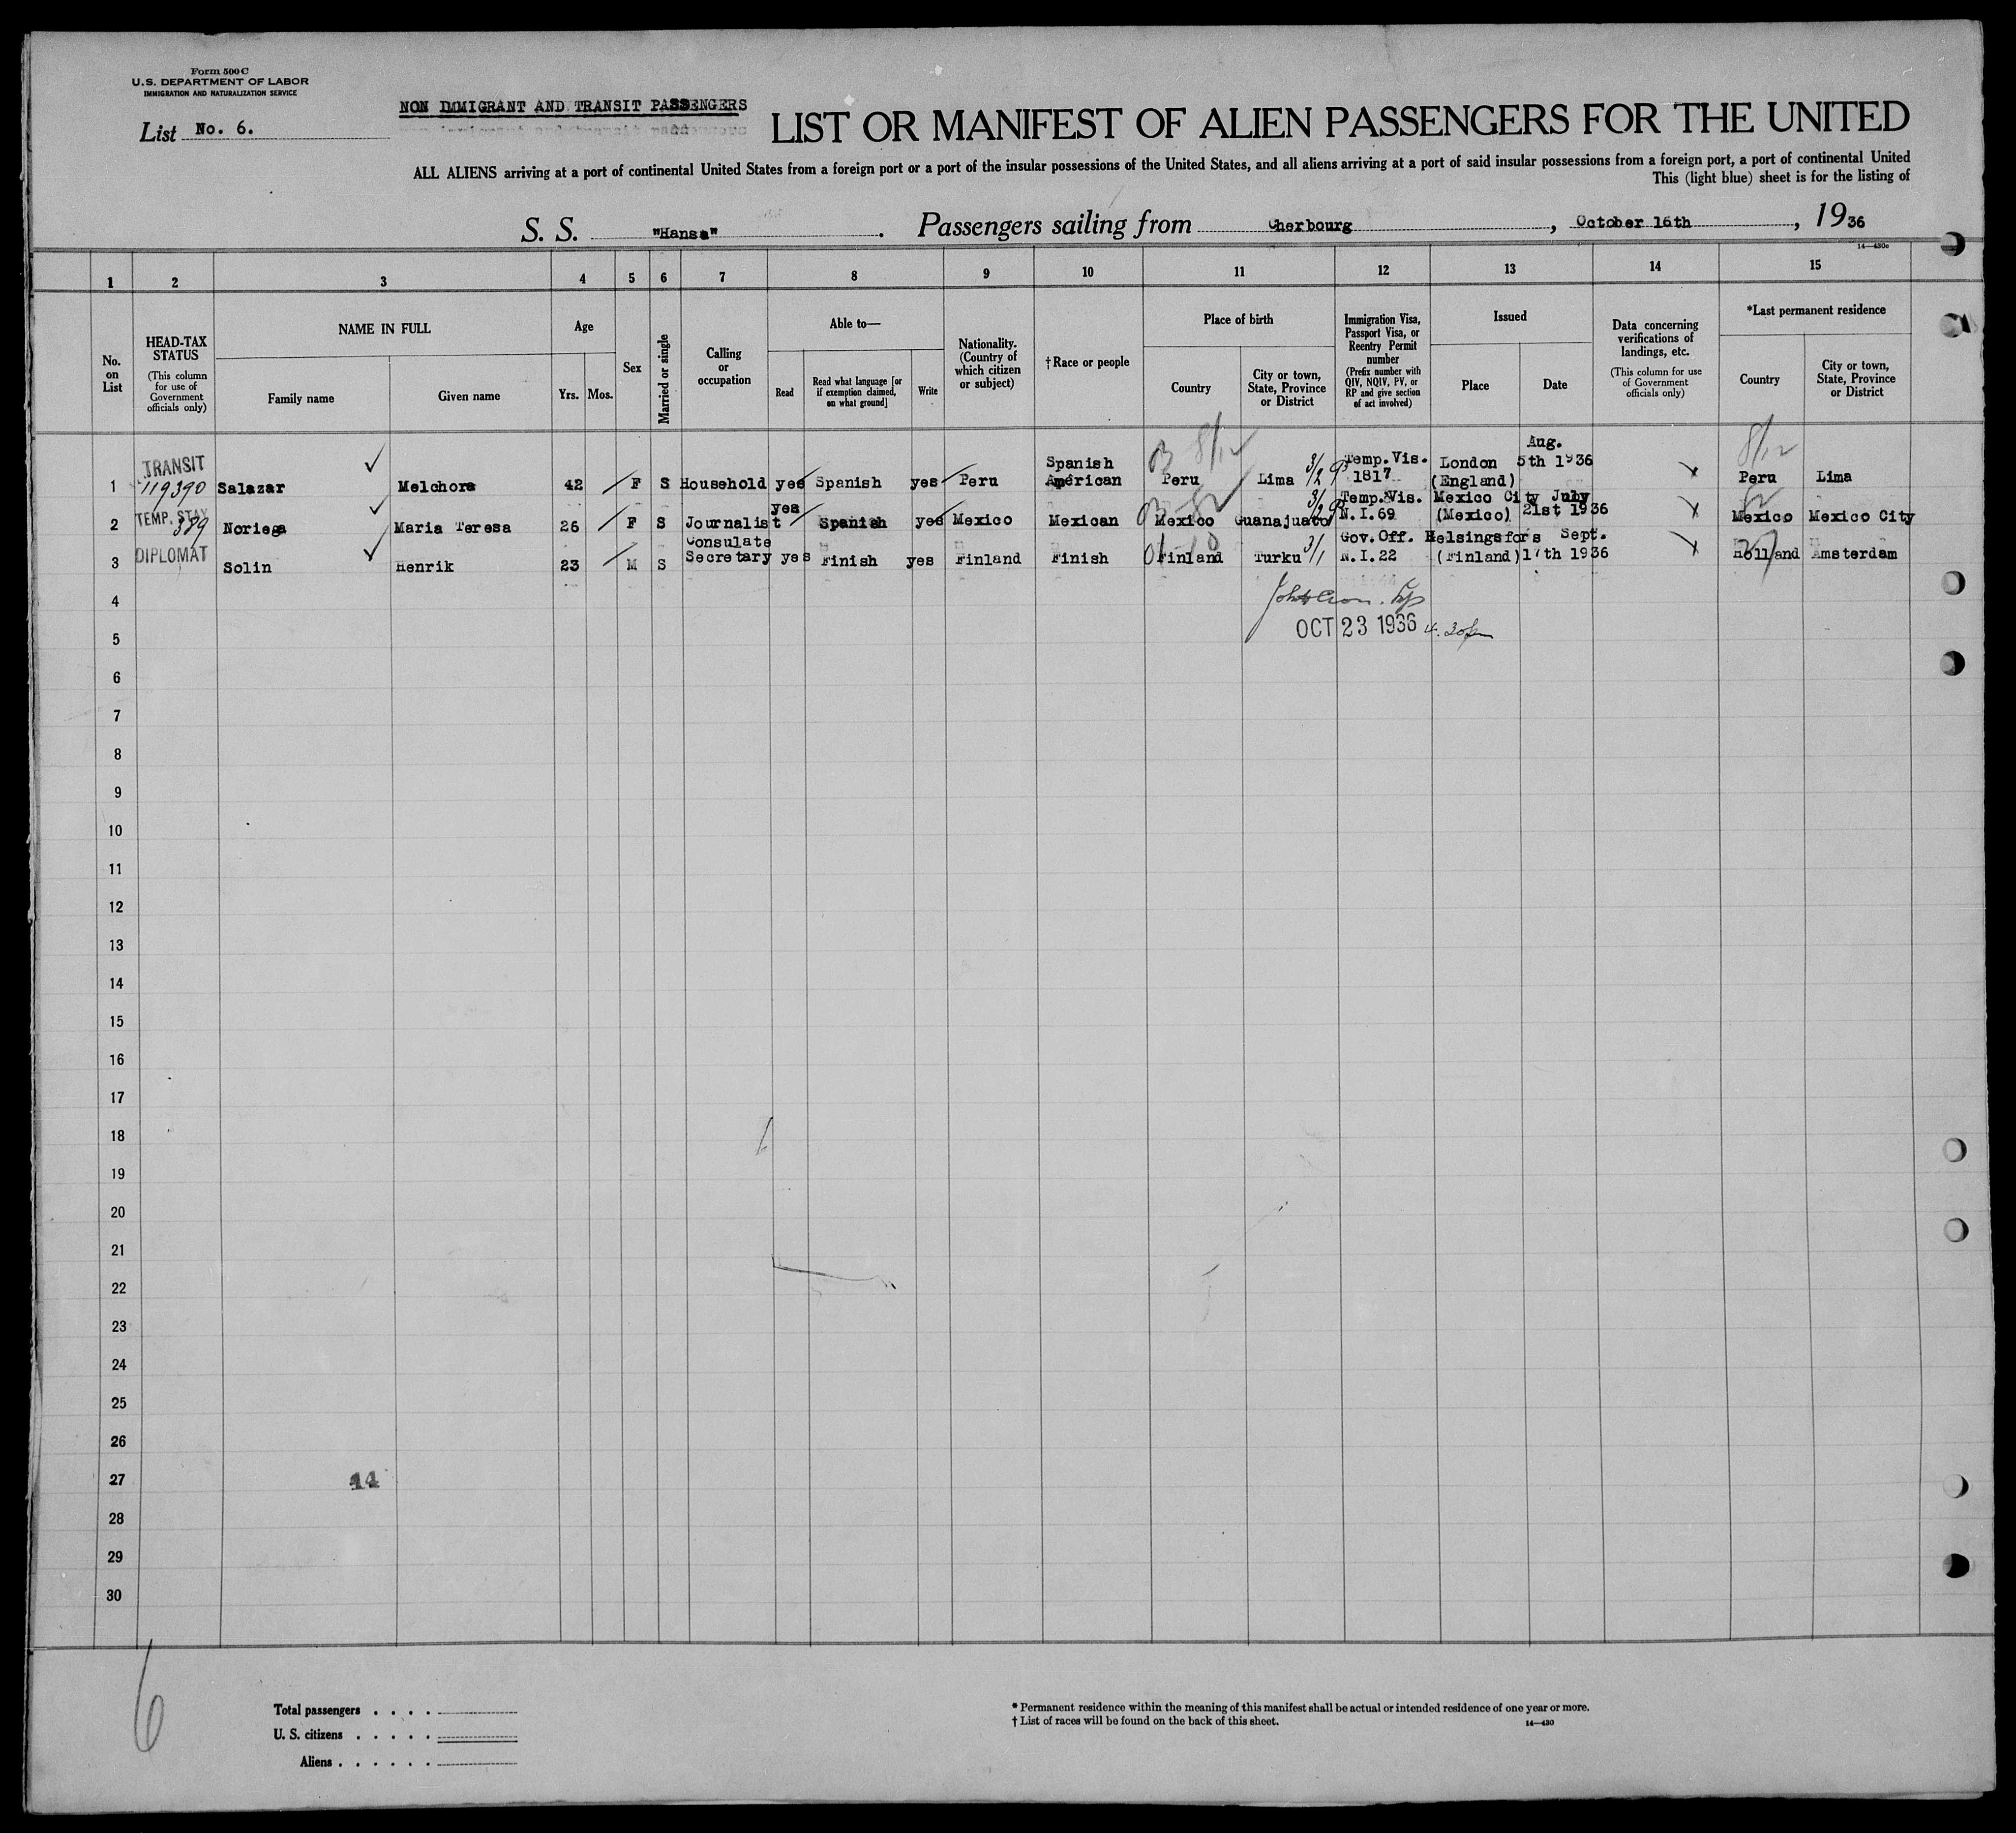 Form 500 C
U.S. DEPARTMENT OF LABOR
IMMIGRATION AND NATURALIZATION SERVICE
NON IMMIGRANT AND TRANSIT PASSENGERS
List No. 6.
LIST OR MANIFEST OF ALIEN PASSENGERS FOR THE UNITED
ALL ALIENS arriving at a port of continental United States from a foreign port or a port of the insular possessions of the United States, and all aliens arriving at a port of said insular possessions from a foreign port, a port of continental United
This (light blue) sheet is for the listing of
S. S. "Hansa". Passengers sailing from Cherbourg, October 16th, 1936
14—430c
1 2 3 4 5 6 7 8 9 10 11 12 13 14 15
No. on List
HEAD-TAX STATUS
(This column for use of Government officials only)
NAME IN FULL
Family name
Given name
Age
Yrs.
Mos.
Sex
Married or single
Calling or occupation
Able to—
Read
Read what language [or if exemption claimed, on what ground]
Write
Nationality. (Country of which citizen or subject)
†Race or people
Place of birth
Country
City or town, State, Province or District
Immigration Visa, Passport Visa, or Reentry Permit number
(Prefix number with QIV, NQIV, PV, or RP and give section of act involved)
Issued
Place
Date
Data concerning verifications of landings, etc.
(This column for use of Government officials only)
*Last permanent residence
Country
City or town, State, Province or District
1 TRANSIT 119390 Salazar Melchora 42 F S Household yes Spanish yes Peru Spanish American Peru Lima 3/29 Temp.Vis. 1817 London (England) Aug. 5th 1936 Peru Lima
8/12
8/12
2 TEMP. STAY 389 Noriega Maria Teresa 26 F S Journalist yes Spanish yes Mexico Mexican Mexico Guanajuato 3/29 Temp.Vis. N.I.69 Mexico City (Mexico) July 21st 1936 Mexico Mexico City
3 DIPLOMAT Solin Henrik 23 M S Consulate Secretary yes Finish yes Finland Finish Finland Turku 3/1 Gov.Off. N.I.22 Helsingsfors (Finland) Sept. 17th 1936 Holland Amsterdam
4
5 OCT 23 1936 4.30pm
6
7
8
9
10
11
12
13
14
15
16
17
18
19
20
21
22
23
24
25
26
27 44
28
29
30
6
Total passengers . . . .
U. S. citizens . . . . .
Aliens . . . . . .
* Permanent residence within the meaning of this manifest shall be actual or intended residence of one year or more.
† List of races will be found on the back of this sheet.
14—430